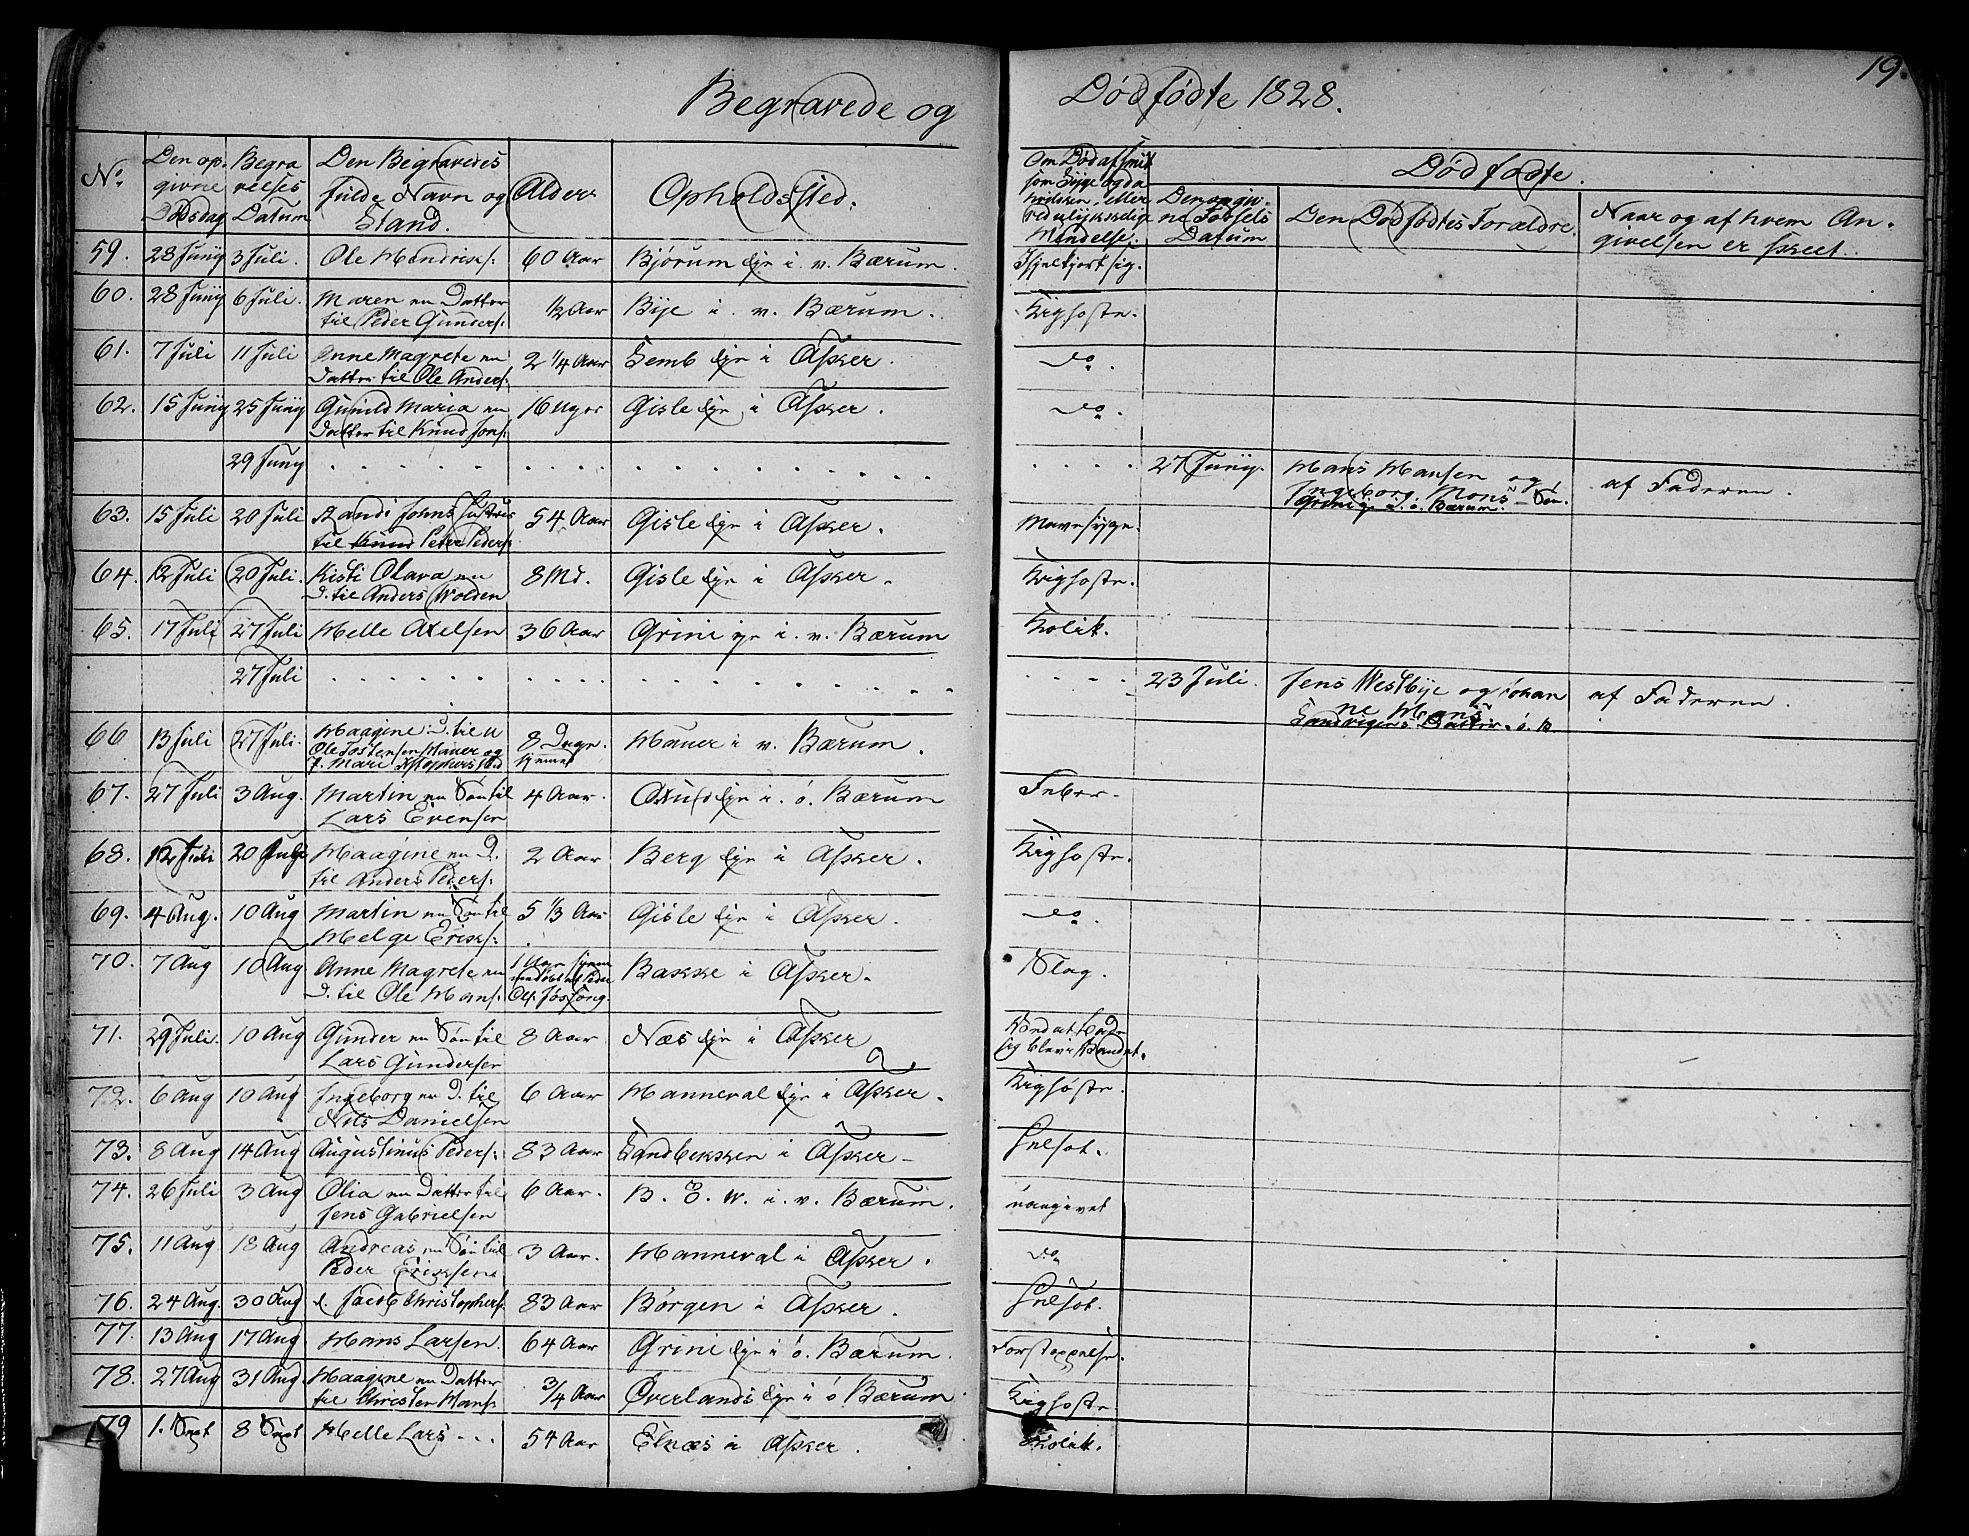 19.
Begravede og Dødfødte 1828.
No. Den opgivne Dødsdag Begravelses Datum Den Begravedes fulde Navn og Stand. Alder Opholdssted. Om Død af smitsom Syge ogda hvilken, eller ved ulykkelige Hændelse. Dødfødte.
Den opgivne Fødsels Datum Den Dødfødtes Forældre. Naar og af hvem Angivelsen er skeet.
59. 28 Juny 3 Juli. Ole Hendriks: 60 Aar Bjørum Eje i v. Bærum. ihjelkjørt sig.
60. 28 Juny 6 Juli. Maren en Datter til Peder Gunders: ½ Aar Bye i v. Bærum. Kighoste.
61. 7 Juli 11 Juli Anne Magrete en Datter til Ole Anders: 2 1/4 Aar Semb Eje i Asker. do.
62. 15 Juny 25 Juny Gunild Maria en Datter til Knud Jons: 16 Uger Gisle Eje i Asker. do.
29 Juny 27 Juny. Hans Hansen og Ingeborg Mons - Søn. Grini i ø. Bærum. af Faderen.
63. 15 Juli 20 Juli Randi Johns Hustrue til Knud Peter Peders: 54 Aar Gisle Eje i Asker. Mavesyge.
64. 12 Juli 20 Juli. Kisti Olava en D. til Anders Wolden 8 Md. Gisle Eje i Asker. Kighoste.
65. 17 Juli 27 Juli Helle Axelsen 36 Aar Grini eje i v. Bærum Kolik.
27 Juli 23 Juli. Jens Westbye og Johanne Hans Sandvigens Datter ø. B. af Faderen.
66 13 Juli 27 Juli. Maagine D. til Ole Tostensen Hauer og Mari Kristophersd. 8 Dage. hjemmed. Hauer i v. Bærum.
67. 27 Juli 3 Aug. Martin en Søn til Lars Evensen 4 Aar. Eje i ø. Bærum Feber.
68. 12 Juli 20 Juli Maagine en D. til Anders Peders: 2 Aar Berg Eje i Asker. Kighoste.
69. 4 Aug. 10 Aug Martin en Søn til Helge Eriks: 5 1/3 Aar Gisle Eje i Asker. do.
70. 7 Aug 10 Aug Anne Magrete en D. til Ole Hans: 1 Aar Bakke i Asker. Slag.
71. 29 Juli. 10 Aug Gunder en Søn til Lars Gundersen 8 Aar Næs Eje i Asker
72. 6 Aug 10 Aug Ingeborg en D. til Nils Danielsen 6 Aar Hanneval Eje i Asker. Kighoste.
73. 8 Aug 14 Aug Augustinus Peders: 83 Aar Sandbekken i Asker - Helsot.
74. 26 Juli 3 Aug Olia en Datter til Jens Gabrielsen 6 Aar. B. E. W. i v. Bærum. uangivet
75. 11 Aug 18 Aug Andreas en Søn til Peder Eriksen 3 Aar. Hanneval i Asker. do.
76. 24 Aug. 30 Aug l. Jacob Christophers: 83 Aar Børgen i Asker. Helsot.
77. 13 Aug 17 Aug Hans Larsen. 64 Aar Grini Eje i ø. Bærum. Forstoppelse.
78. 27 Aug 31 Aug. Maagine en Datter til Christen Hans: 3/4 Aar Øverlands Eje i ø Bærum Kighoste
79 1. Sept 8 Sept Helle Lars - 54 Aar Elnæs i Asker. Kolik.